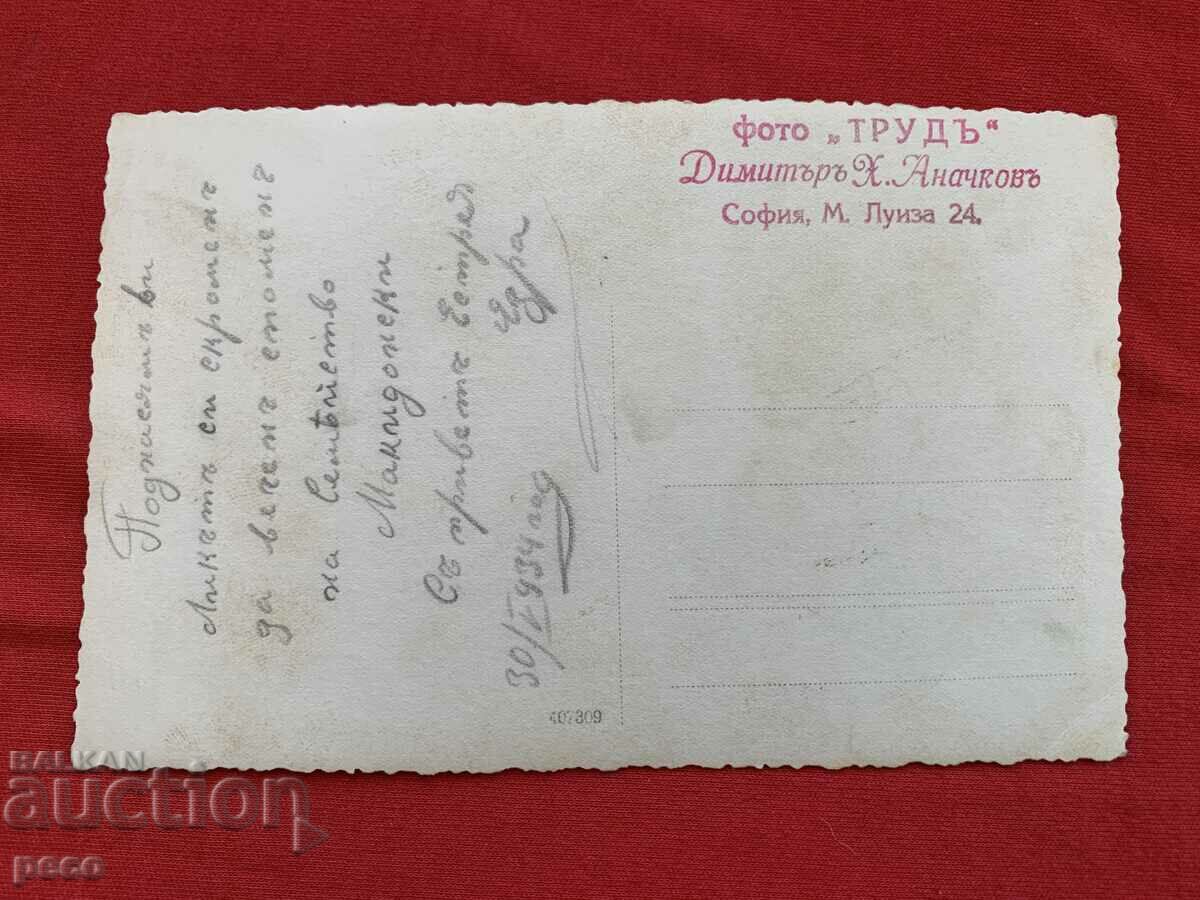 фото „ТРУДЪ“
Димитъръ Х. Аначковъ
София, М. Луиза 24.
Поднасямъ ви
Ликътъ си скроменъ
за веченъ споменъ
на Семѣйство
Мандонски
Съ приветъ Естрея
Езра
30/V 934 год
407309
BALKAN
auction
peco